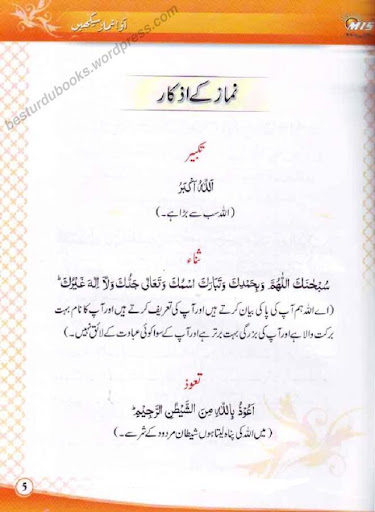 آؤ نماز سیکھیں
MIS
besturdubooks.wordpress.com
نماز کے اذکار
تکبیر
اَللّٰهُ اَكْبَرُ
(اللہ سب سے بڑا ہے۔)
ثناء
سُبْحٰنَكَ اللّٰهُمَّ وَبِحَمْدِكَ وَتَبَارَكَ اسْمُكَ وَتَعَالٰى جَدُّكَ وَلَآ اِلٰهَ غَيْرُكَ ؕ
(اے اللہ ہم آپ کی پاکی بیان کرتے ہیں اور آپ کی تعریف کرتے ہیں اور آپ کا نام بہت
برکت والا ہے اور آپ کی بزرگی بہت برتر ہے اور آپ کے سوا کوئی عبادت کے لائق نہیں۔)
تعوذ
اَعُوْذُ بِاللّٰهِ مِنَ الشَّيْطٰنِ الرَّجِيْمِ ؕ
(میں اللہ کی پناہ لیتا ہوں شیطان مردود کے شر سے۔)
5